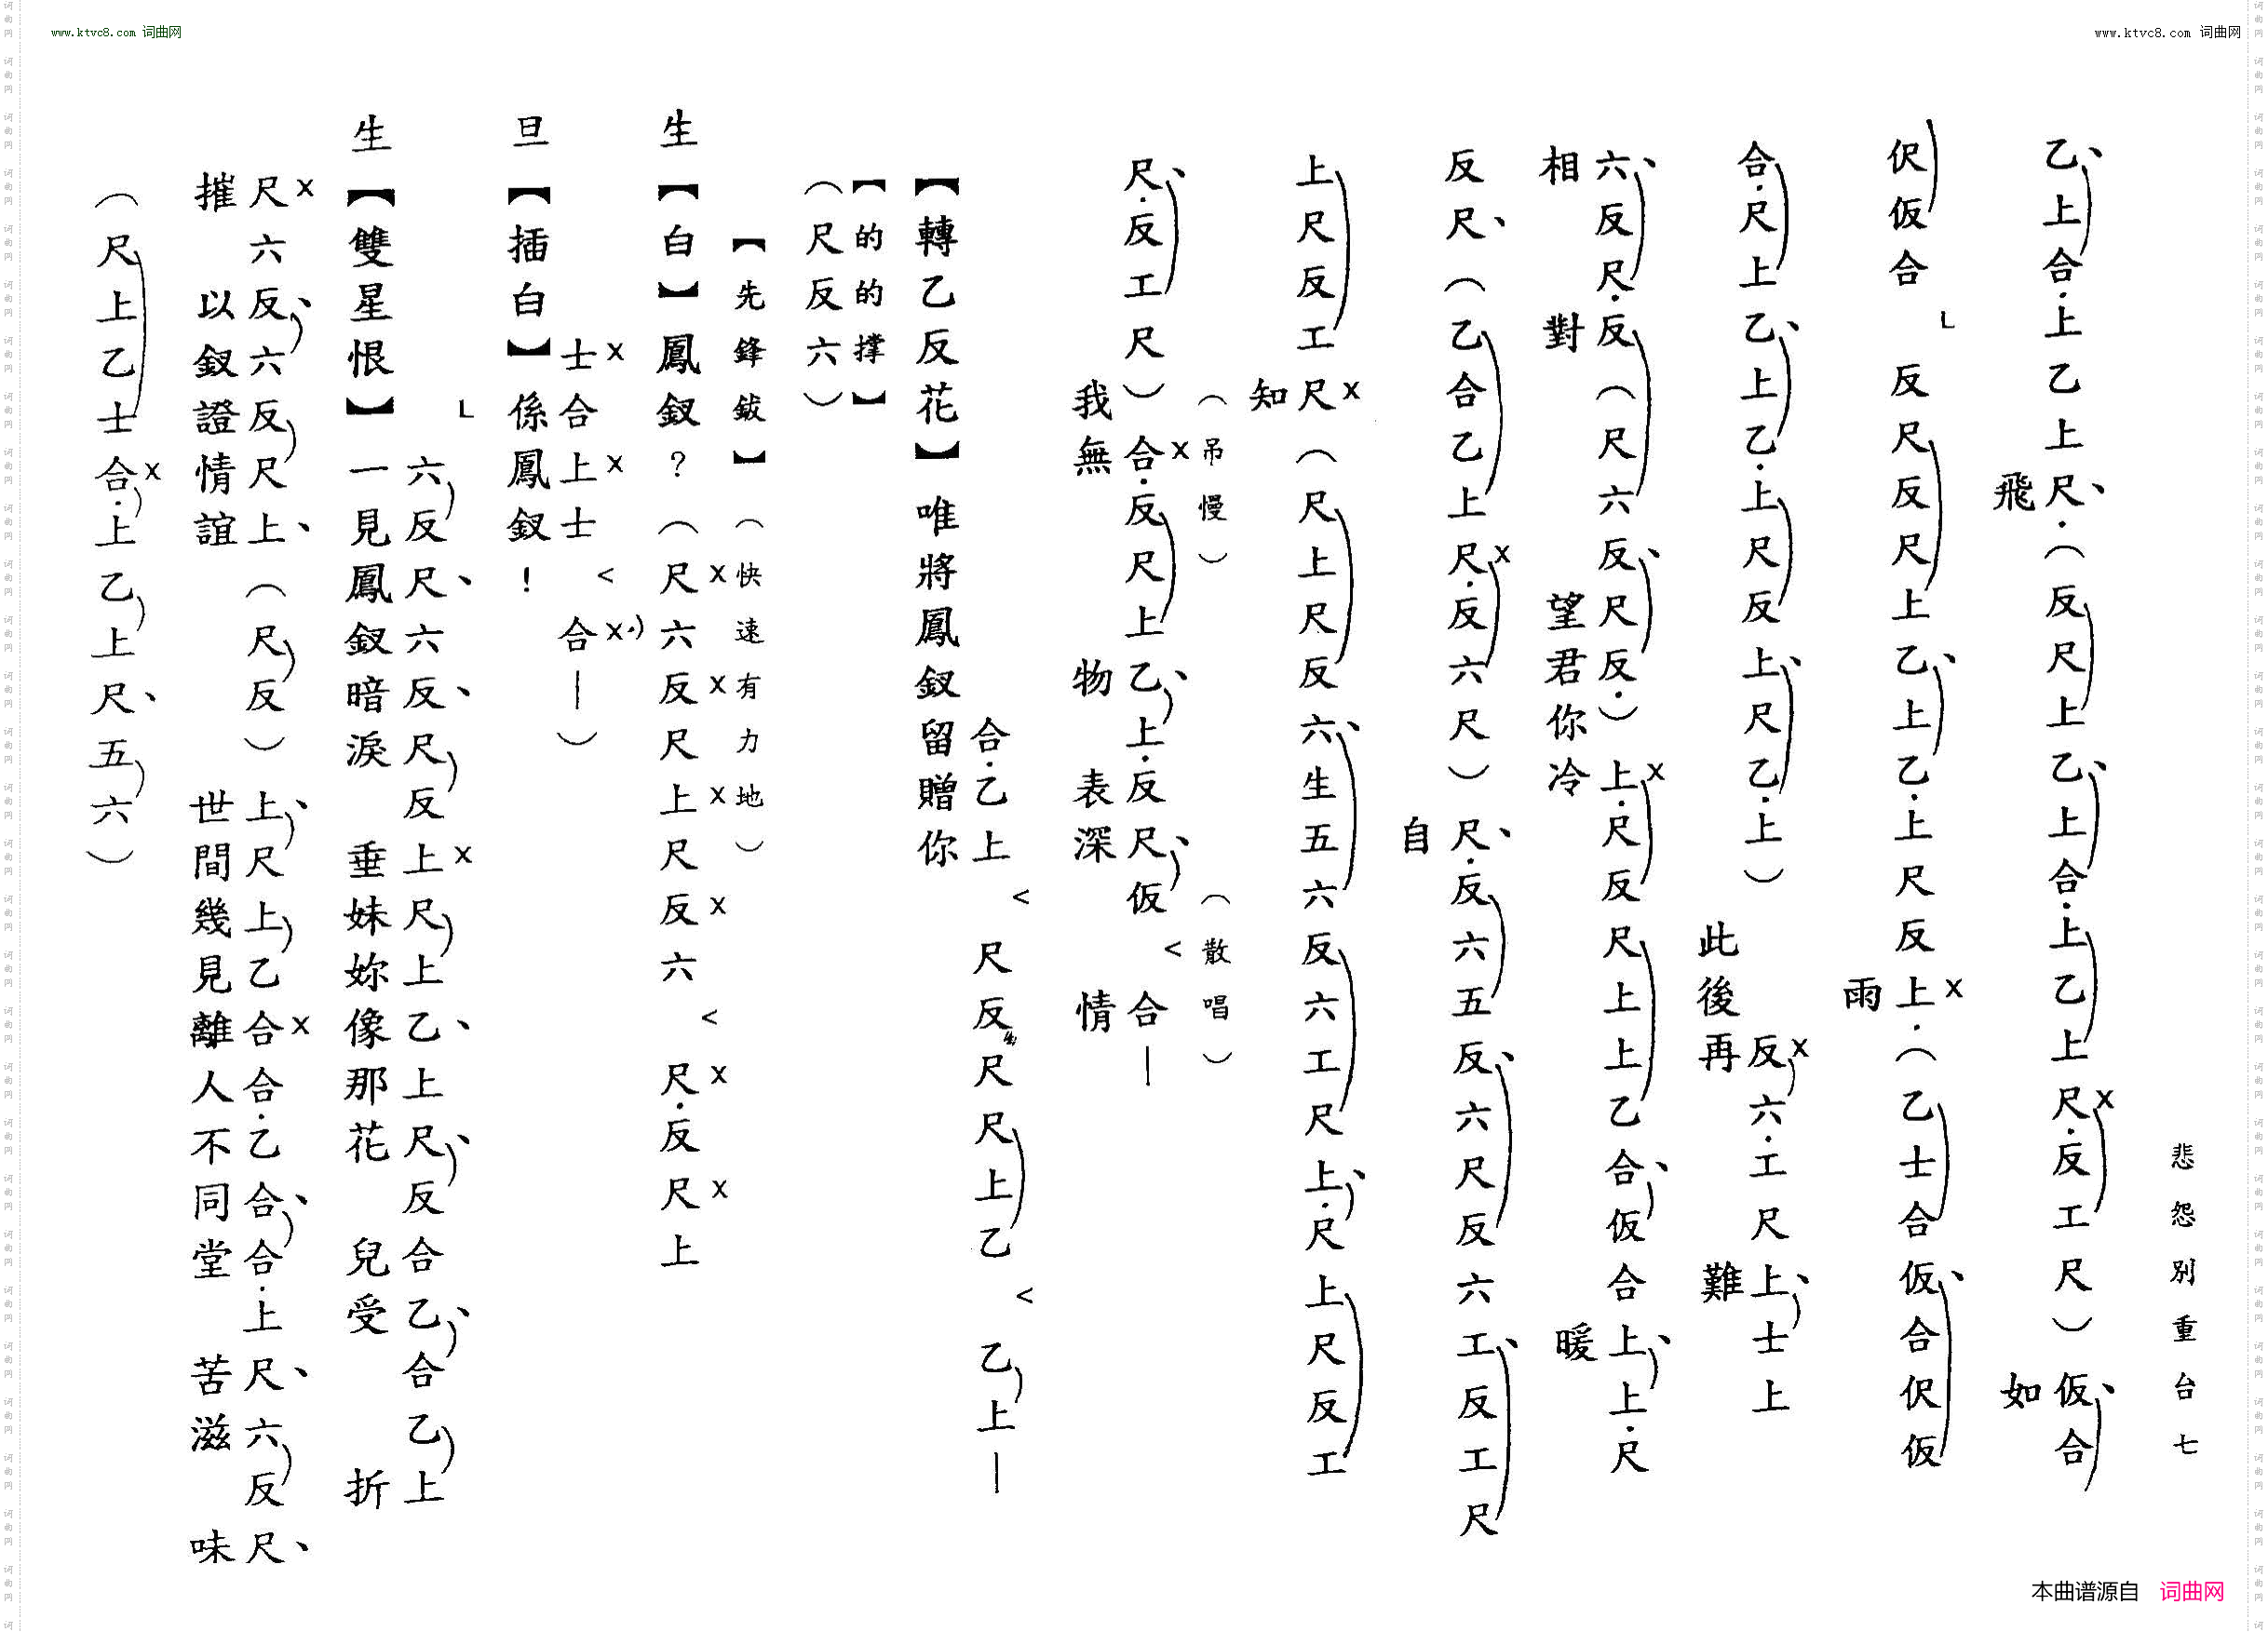 www.ktvc8.com 词曲网
www.ktvc8.com 词曲网
悲怨別重台七
乙、上合·上乙上尺、·（反尺上乙、上合·上乙上尺x·反工尺）仮、合
飛如
伬仮合 └ 反尺反尺上乙、上乙·上尺反上x·（乙士合仮、合伬仮
雨
合·尺上乙、上乙·上尺反上、尺乙·上）反x六·工尺上、士上
此後再難
六、反尺·反（尺六反、尺反·）上x·尺反尺上上乙合、仮合上、上·尺
相對望君你冷暖
反尺、（乙合乙上尺x·反六尺）尺、·反六五反、六尺反六工、反工尺
自
上尺反工尺x（尺上尺反六、生五六反六工尺上、·尺上尺反工
知
（吊慢）（散唱）
尺、·反工尺）合x·反尺上乙、上·反尺、仮 < 合—
我無物表深情
合·乙上 < 尺反尺尺上乙 < 乙上—
【轉乙反花】唯將鳳釵留贈你
【的的撑】
（尺反六）
【先鋒鈸】（快速有力地）
生【白】鳳釵？（尺x六反x尺上x尺反x六 < 尺x·反尺x上
士x合上x士 < 合x·—）
旦【插白】係鳳釵！
└ 六反尺、六反、尺反上x尺上乙、上尺、反合乙、合乙上
生【雙星恨】一見鳳釵暗淚垂妹妳像那花兒受折
尺x六反、六反尺上、（尺反）上、尺上乙合x合·乙合、合·上尺、六反尺、
摧以釵證情誼世間幾見離人不同堂苦滋味
（尺上乙士合x·上乙上尺、五六）
本曲谱源自 词曲网